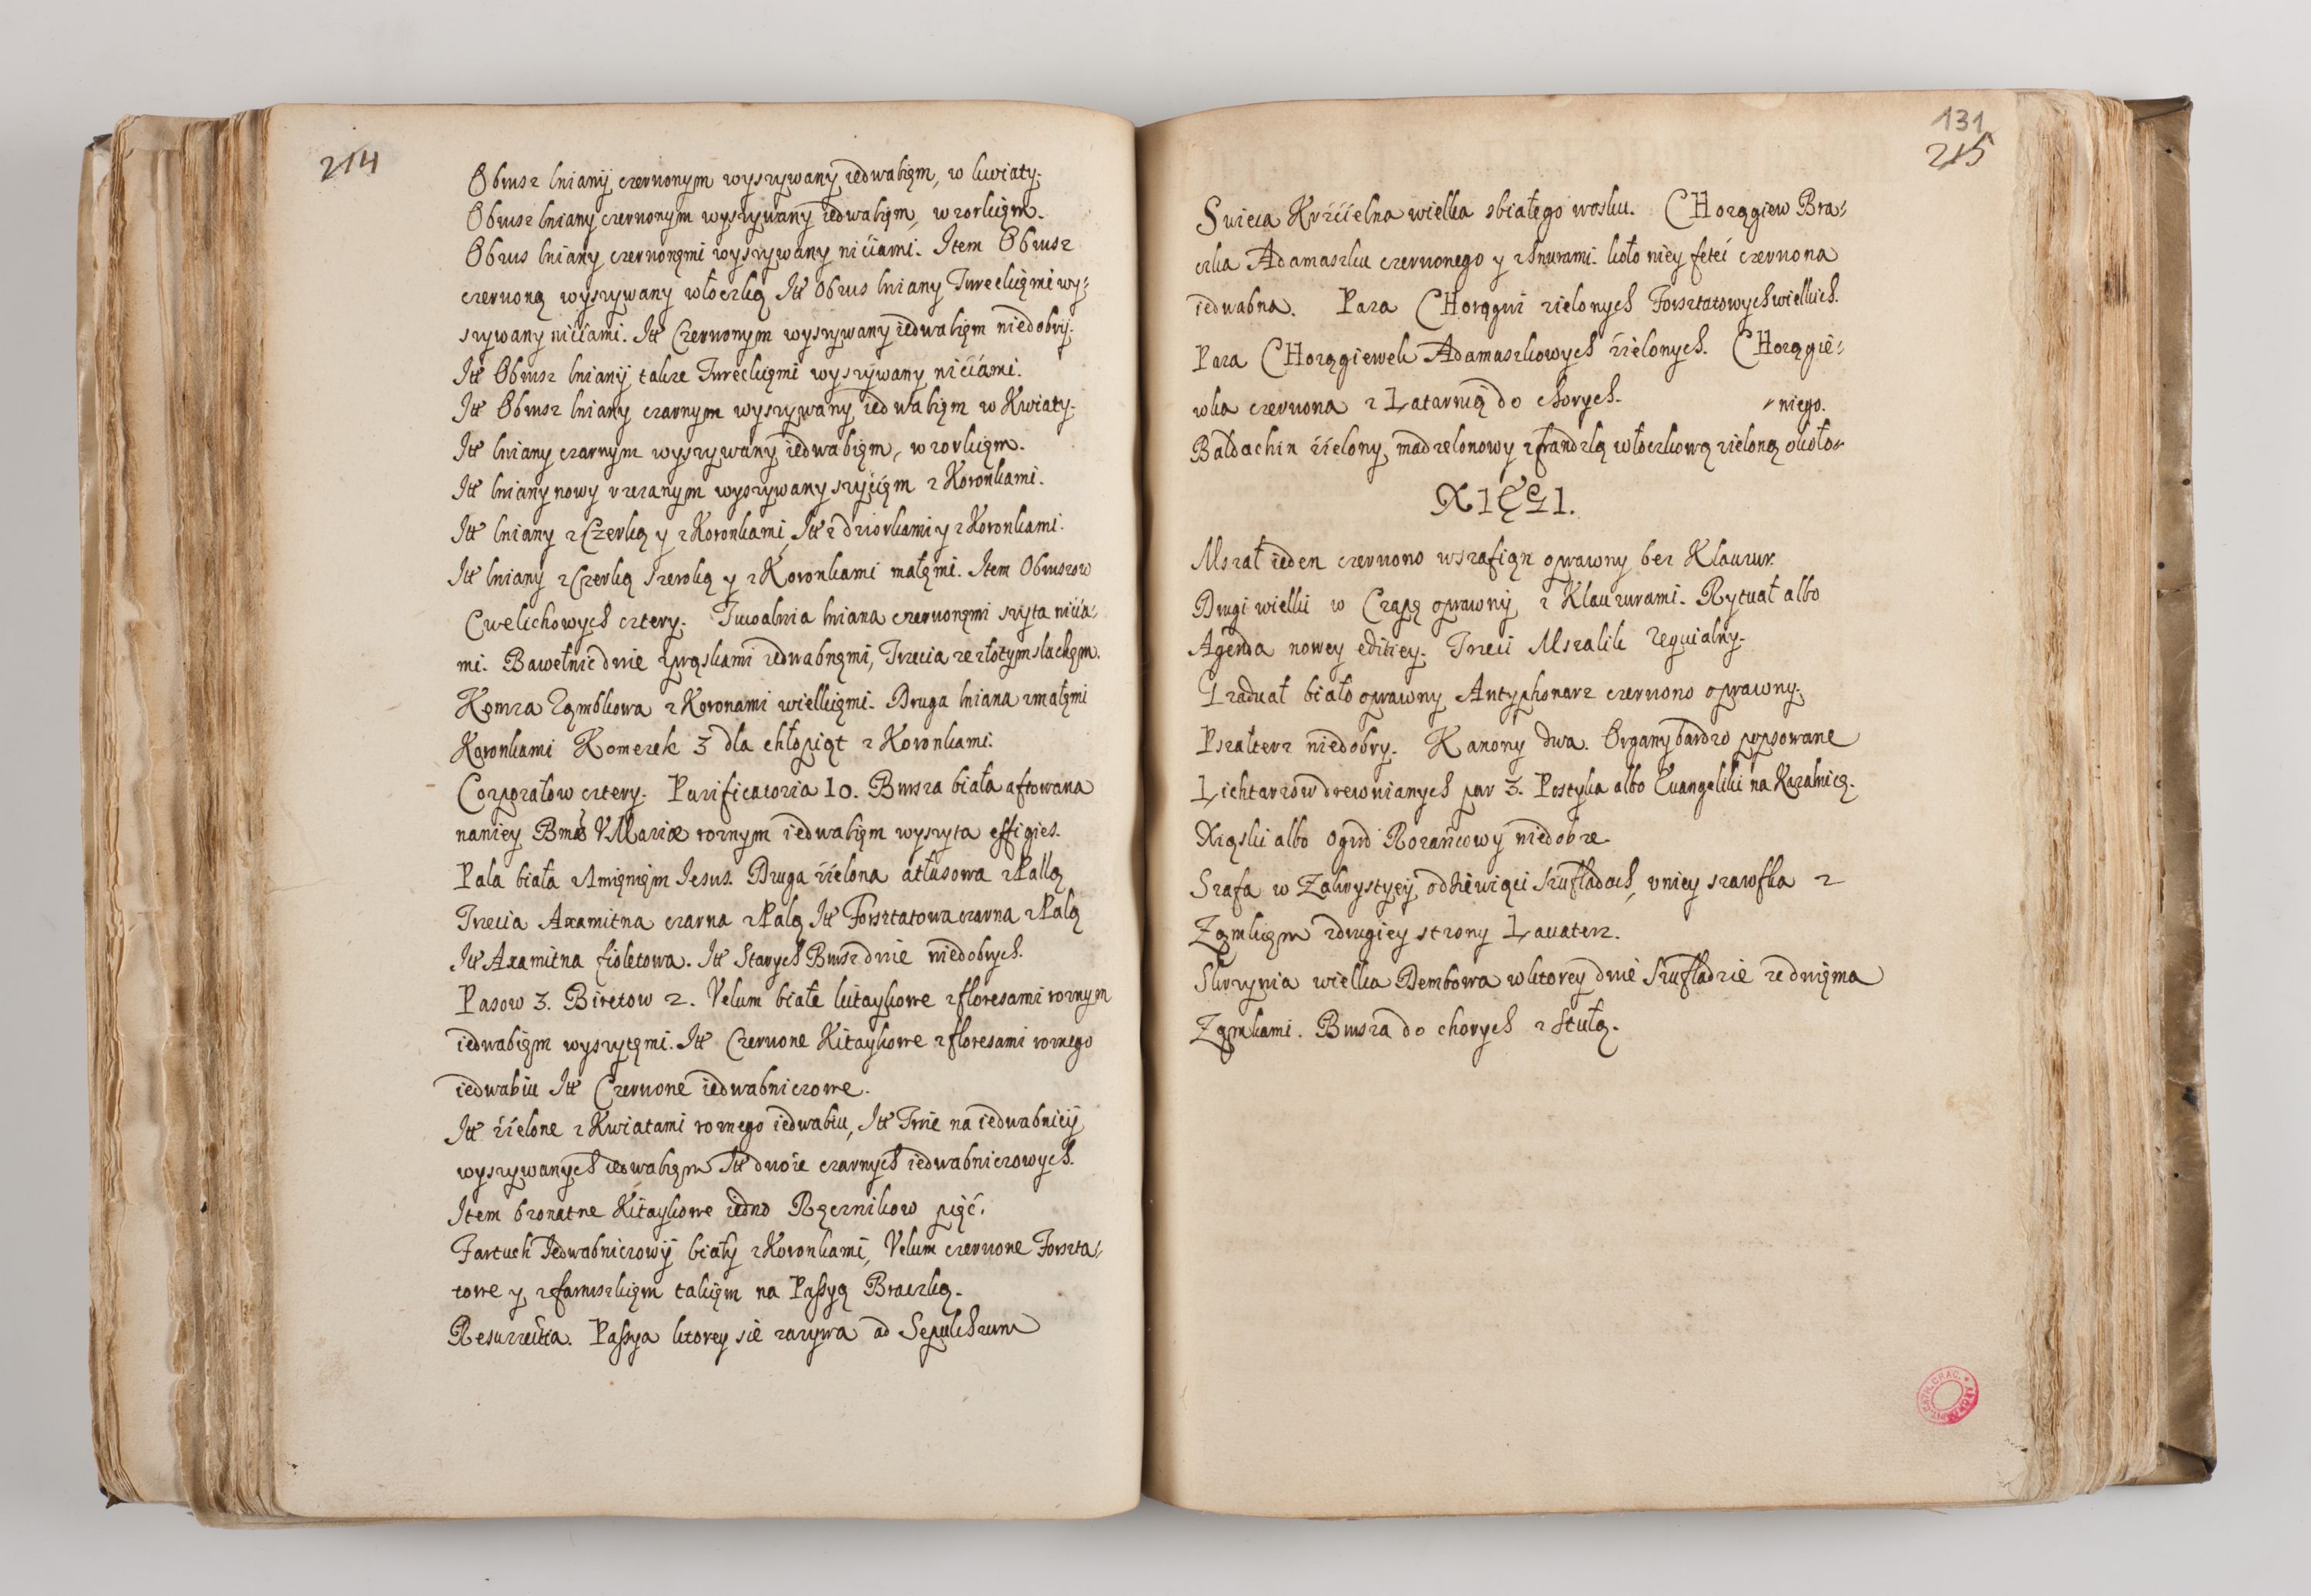 214
Obrusz lniany czerwonym wyszywany iedwabięm, w kwiaty.
Obrusz lniany czerwonym wyszywany iedwabięm, wzorkięm.
Obrus lniany czerwonęmi wyszywany nićiami. Item Obrusz
czerwoną wyszywany włoczką Itt Obrus lniany Tureckięmi wy-
szywany nićiami. Itt Czerwonym wyszywany iedwabięm niedobry.
Itt Obrusz lniany takze Tureckięmi wyszywany nićiami.
Itt Obrusz lniany czarnym wyszywany iedwabięm w Kwiaty.
Itt lniany czarnym wyszywany iedwabięm, wzorkięm.
Itt lniany nowy vrzezanym wyszywany szyćięm z Koronkami.
Itt lniany z Czerką y z Koronkami, Itt z dziorkami y z Koronkami.
Itt lniany z Czerką szeroką y z Koronkami małęmi. Item Obruszow
Cwelichowych cztery. Tuwalnia lniana czerwonęmi szyta nićia-
mi. Bawełnic dwie z pąskami iedwabnęmi, Trzecia ze złotym slachęm.
Komza Rąmbkowa z Koronami wielkięmi. Druga lniana z małęmi
Koronkami Komezek 3 dla chłopiąt z Koronkami.
Corporałow cztery. Purificatoria 10. Bursza biała aftowana
naniey Bmæ V Mariæ roznym iedwabięm wyszyta effigies.
Pala biała z Imięnięm Jesus. Druga źielona atłasowa z Pallą
Trzecia Axamitna czarna z Palą Itt Forsztatowa czarna z Palą
Itt Axamitna fioletowa. Itt Starych Bursz dwie niedobrych.
Pasow 3. Biretow 2. Velum białe kitaykowe z floresami roznym
iedwabięm wyszytęmi. Itt Czerwone Kitaykowe z floresami roznego
iedwabiu Itt Czerwone iedwabniczowe.
Itt źielone z Kwiatami roznego iedwabiu, Itt Trzie na iedwabnicy
wyszywanych iedwabięm Itt dwoie czarnych iedwabniczowych.
Item bronatne Kitaykowe iedno Ręcznikow pięć.
Fartuch Jedwabniczowy biały z Koronkami, Velum czerwone Forszta-
towe y z fartuszkięm takięm na Passyą Bracką.
Resurrectia. Passya ktorey sie zazywa ad Sepulchrum
131
215
Swieca Krźćielna wielka z białego wosku. CHorągiew Bra-
czka Adamaszku czerwonego y z Snurami. koło niey feteć czerwona
iedwabna. Para CHorągwi zielonych Forsztatowych wielkich.
Para CHorągiewek Adamaszkowych źielonych. CHorągie-
wka czerwona z Latarnią do chorych.
niego.
Baldachin źielony, madzelonowy z frandzlą włoczkową zieloną około
XIĘGI.
Mszał ieden czerwono w szafian oprawny bez Klauzur.
Drugi wielki w Czapę oprawny z Klauzurami. Rytuał albo
Agenda nowey editiey. Trzeci Mszalik Requialny.
Graduał biało oprawny Antyphonarz czerwono oprawny.
Pszałterz niedobry. Kanony dwa. Organy bardzo popsowane
Lichtarzow drewnianych par 3. Postyla albo Euangeliki na Kazalnicę.
Xiąski albo Ogrod Rozańcowy niedobre.
Szafa w Zakrystyey, o dźiewiąci Szufladach, v niey szawfka z
Ząmkięm z drugiey strony Lauaterz.
Skrzynia wielka Dembowa w ktorey dwie Szufladzie ze dwięma
Ząmkami. Bursza do chorych z Stułą.